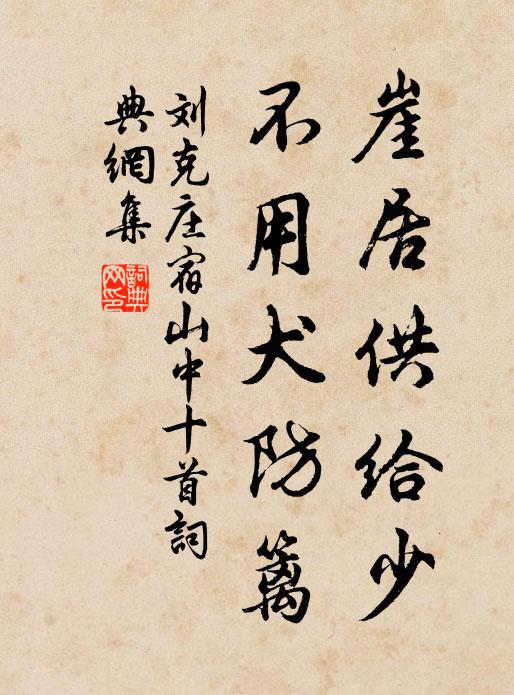 崖居供给少
不用犬防篱
刘克庄宿山中十首词
典網集
詞典網印